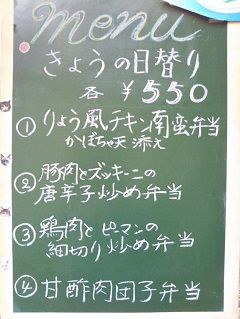 menu
きょうの日替り
各 ¥550
① りょう風チキン南蛮弁当
かぼちゃ天 添え
② 豚肉とズッキーニの
唐辛子炒め弁当
③ 鶏肉とピーマンの
細切り炒め弁当
④ 甘酢肉団子弁当